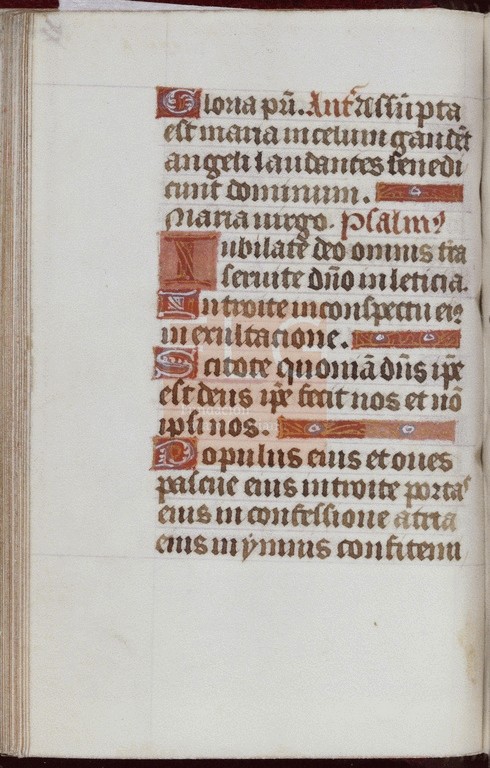 Gloria pr̄i. Ant̄. Assūpta
est maria in celum gaudēt
angeli laudantes benedi
cunt dominum.
Maria virgo. Psalmꝰ
Iubilate deo omnis tr̄a
seruite dn̄o in leticia.
Introite in conspectu eiꝰ
in exultacione.
Scitote quoniā dn̄s ip̄e
est deus ip̄e fecit nos et nō
ipsi nos.
Populus eius et oues
pascue eius introite portas
eius in confessione atria
eius in ymnis confitemi